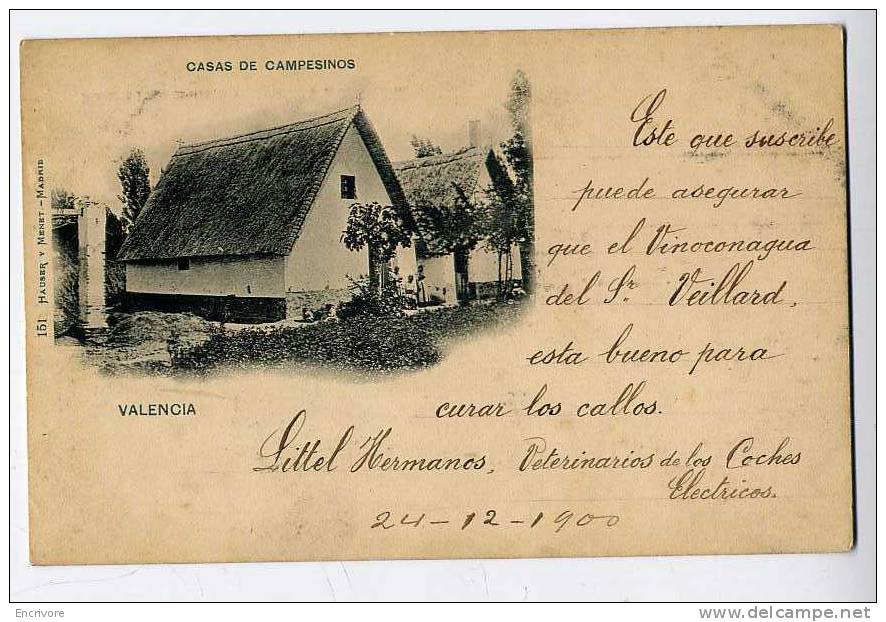 CASAS DE CAMPESINOS
151 HAUSER Y MENET.-MADRID
VALENCIA
Este que suscribe
puede asegurar
que el Vinoconagua
del Sr. Veillard,
esta bueno para
curar los callos.
Littel Hermanos, Veterinarios de los Coches
Electricos.
24-12-1900
Encrivore
www.delcampe.net